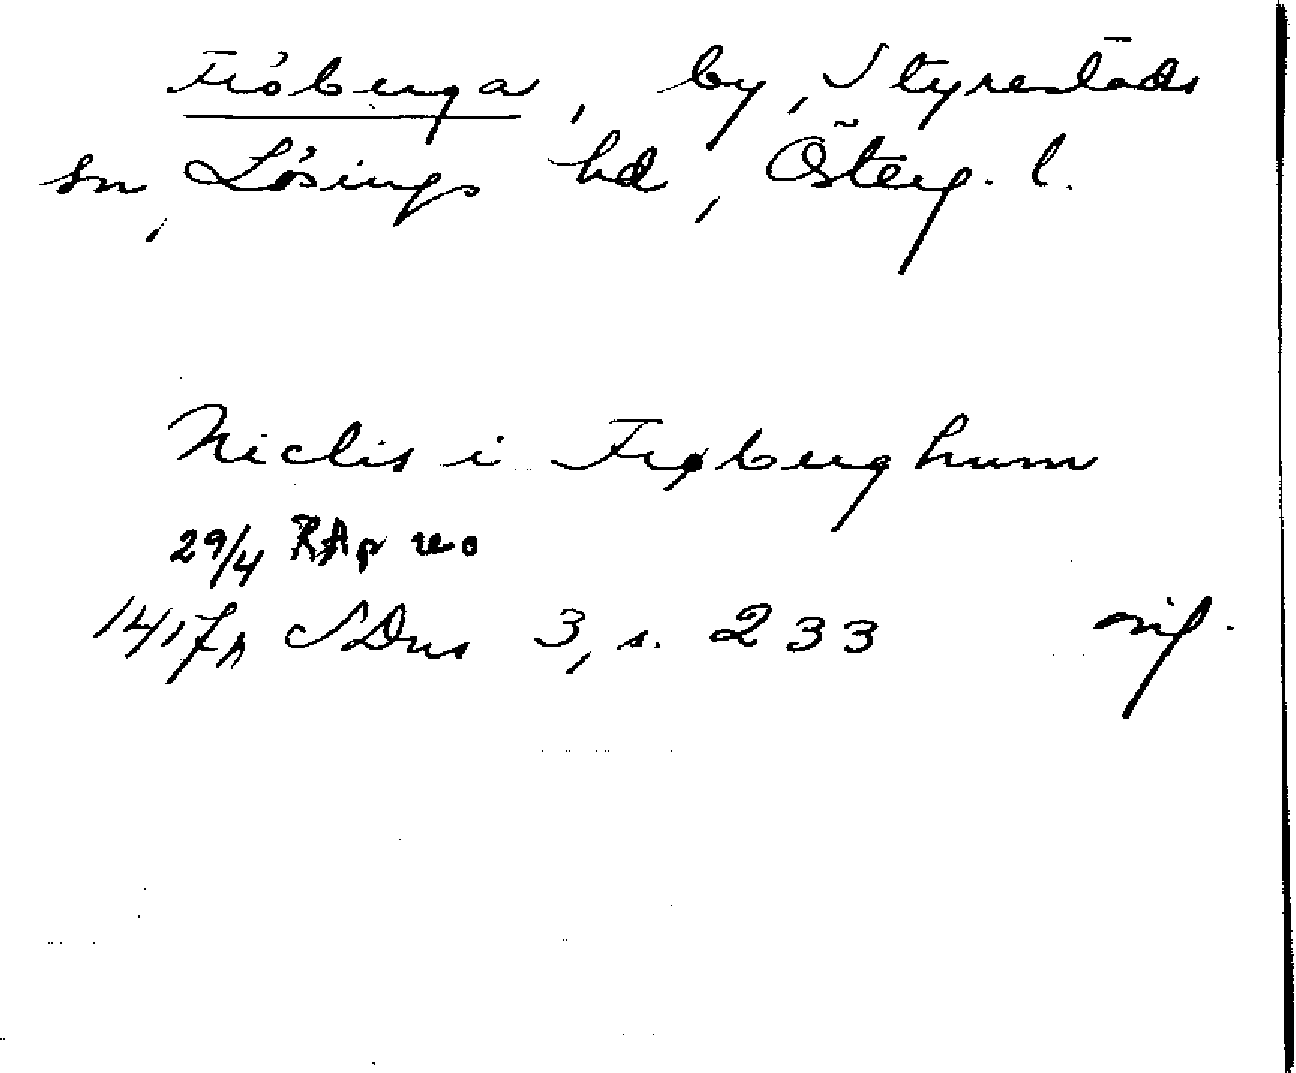 Fröberga, by, Styrestads
sn, Lösings hd, Österg. l.
Niclis i Frøberghum
29/4 RAp
1417 SDns 3, s. 233